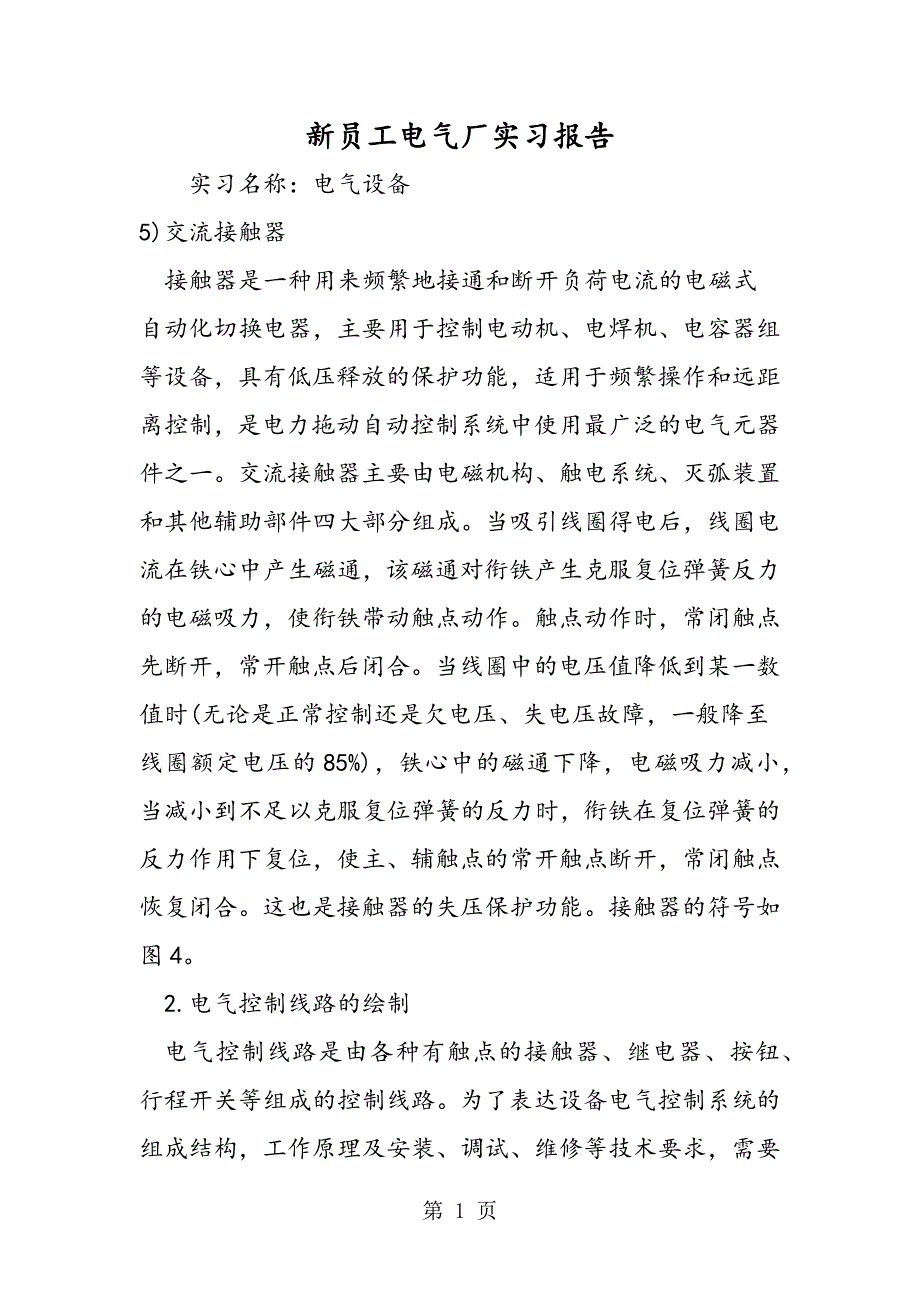 新员工电气厂实习报告
实习名称：电气设备
5)交流接触器
接触器是一种用来频繁地接通和断开负荷电流的电磁式
自动化切换电器，主要用于控制电动机、电焊机、电容器组
等设备，具有低压释放的保护功能，适用于频繁操作和远距
离控制，是电力拖动自动控制系统中使用最广泛的电气元器
件之一。交流接触器主要由电磁机构、触电系统、灭弧装置
和其他辅助部件四大部分组成。当吸引线圈得电后，线圈电
流在铁心中产生磁通，该磁通对衔铁产生克服复位弹簧反力
的电磁吸力，使衔铁带动触点动作。触点动作时，常闭触点
先断开，常开触点后闭合。当线圈中的电压值降低到某一数
值时(无论是正常控制还是欠电压、失电压故障，一般降至
线圈额定电压的85%)，铁心中的磁通下降，电磁吸力减小，
当减小到不足以克服复位弹簧的反力时，衔铁在复位弹簧的
反力作用下复位，使主、辅触点的常开触点断开，常闭触点
恢复闭合。这也是接触器的失压保护功能。接触器的符号如
图4。
2.电气控制线路的绘制
电气控制线路是由各种有触点的接触器、继电器、按钮、
行程开关等组成的控制线路。为了表达设备电气控制系统的
组成结构，工作原理及安装、调试、维修等技术要求，需要
第 1 页